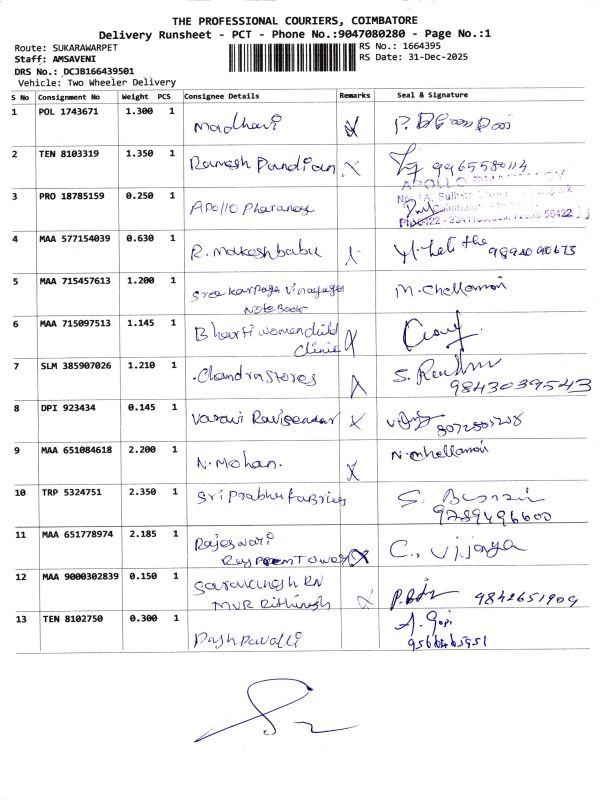 THE PROFESSIONAL COURIERS, COIMBATORE
Delivery Runsheet - PCT - Phone No.:9047080280 - Page No.:1
Route: SUKARAWARPET
RS No.: 1664395
Staff: AMSAVENI
RS Date: 31-Dec-2025
DRS No.: DCJB166439501
Vehicle: Two Wheeler Delivery
S No Consignment No Weight PCS Consignee Details Remarks Seal & Signature
1 POL 1743671 1.300 1 Madhavi
2 TEN 8103319 1.350 1 Ramesh Pandian
3 PRO 18785159 0.250 1 Apollo
4 MAA 577154039 0.630 1 R. Makeshbabu
5 MAA 715457613 1.200 1 Sree karpaga Vinayaga M. Chellamani
NoteBook
6 MAA 715097513 1.145 1 Bharti women child
Clinic
7 SLM 385907026 1.210 1 Chandra Stores S.
9843039543
8 DPI 923434 0.145 1
9 MAA 651084618 2.200 1 N. Mohan. N. Chellamani
10 TRP 5324751 2.350 1 Sri Prabhu Fabrics S.
9789496600
11 MAA 651778974 2.185 1 Rajeswari C., Vijaya
12 MAA 9000302839 0.150 1 9842651909
MVR
13 TEN 8102750 0.300 1 A. Gopi